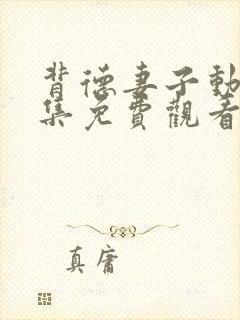 背德妻子動
集免費觀看
真庸